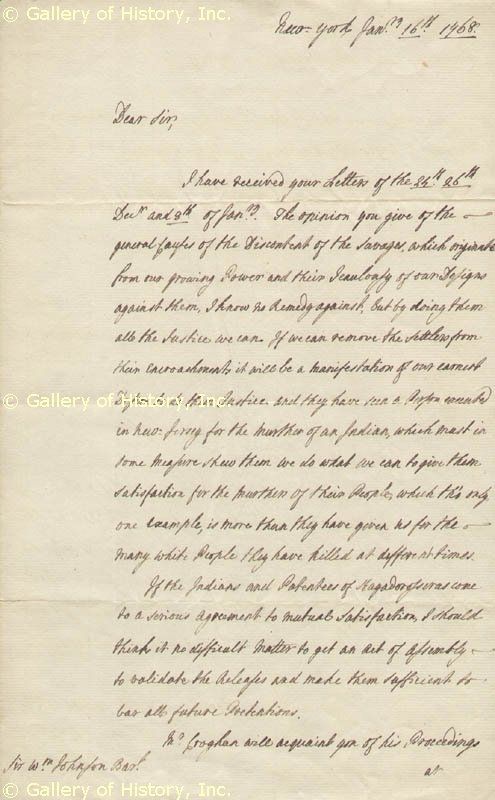 © Gallery of History, Inc.
© Gallery of History, Inc.
New-York Jany 16th 1768.
Dear Sir,
I have received your Letters of the 24th 26th
Decr and 8th of Jany. The opinion you give of the
general Causes of the Discontent of the Savages, which originate
from our growing Power and their Jealousy of our Designs
against them, I know no Remedy against, but by doing them
all the Justice we can. If we can remove the Settlers from
their Encroachments it will be a manifestation of our earnest
to do them Justice and they have seen a Person executed
© Gallery of History, Inc.
© Gallery of History, Inc.
in New-Jersey for the murther of an Indian, which must in
some measure shew them we do what we can to give them
satisfaction for the murthers of their People, which tho' only
one example, is more than they have given us for the
many white People they have killed at different times.
If the Indians and Patentees of come
to a serious Agreement to mutual Satisfaction, I should
think it no difficult Matter to get an Act of Assembly
to validate the Releases and make them sufficient to
bar all future Pretentions.
Mr Croghan will acquaint you of his Proceedings
Sir Wm Johnson Bart.
at
© Gallery of History, Inc.
© Gallery of History, Inc.